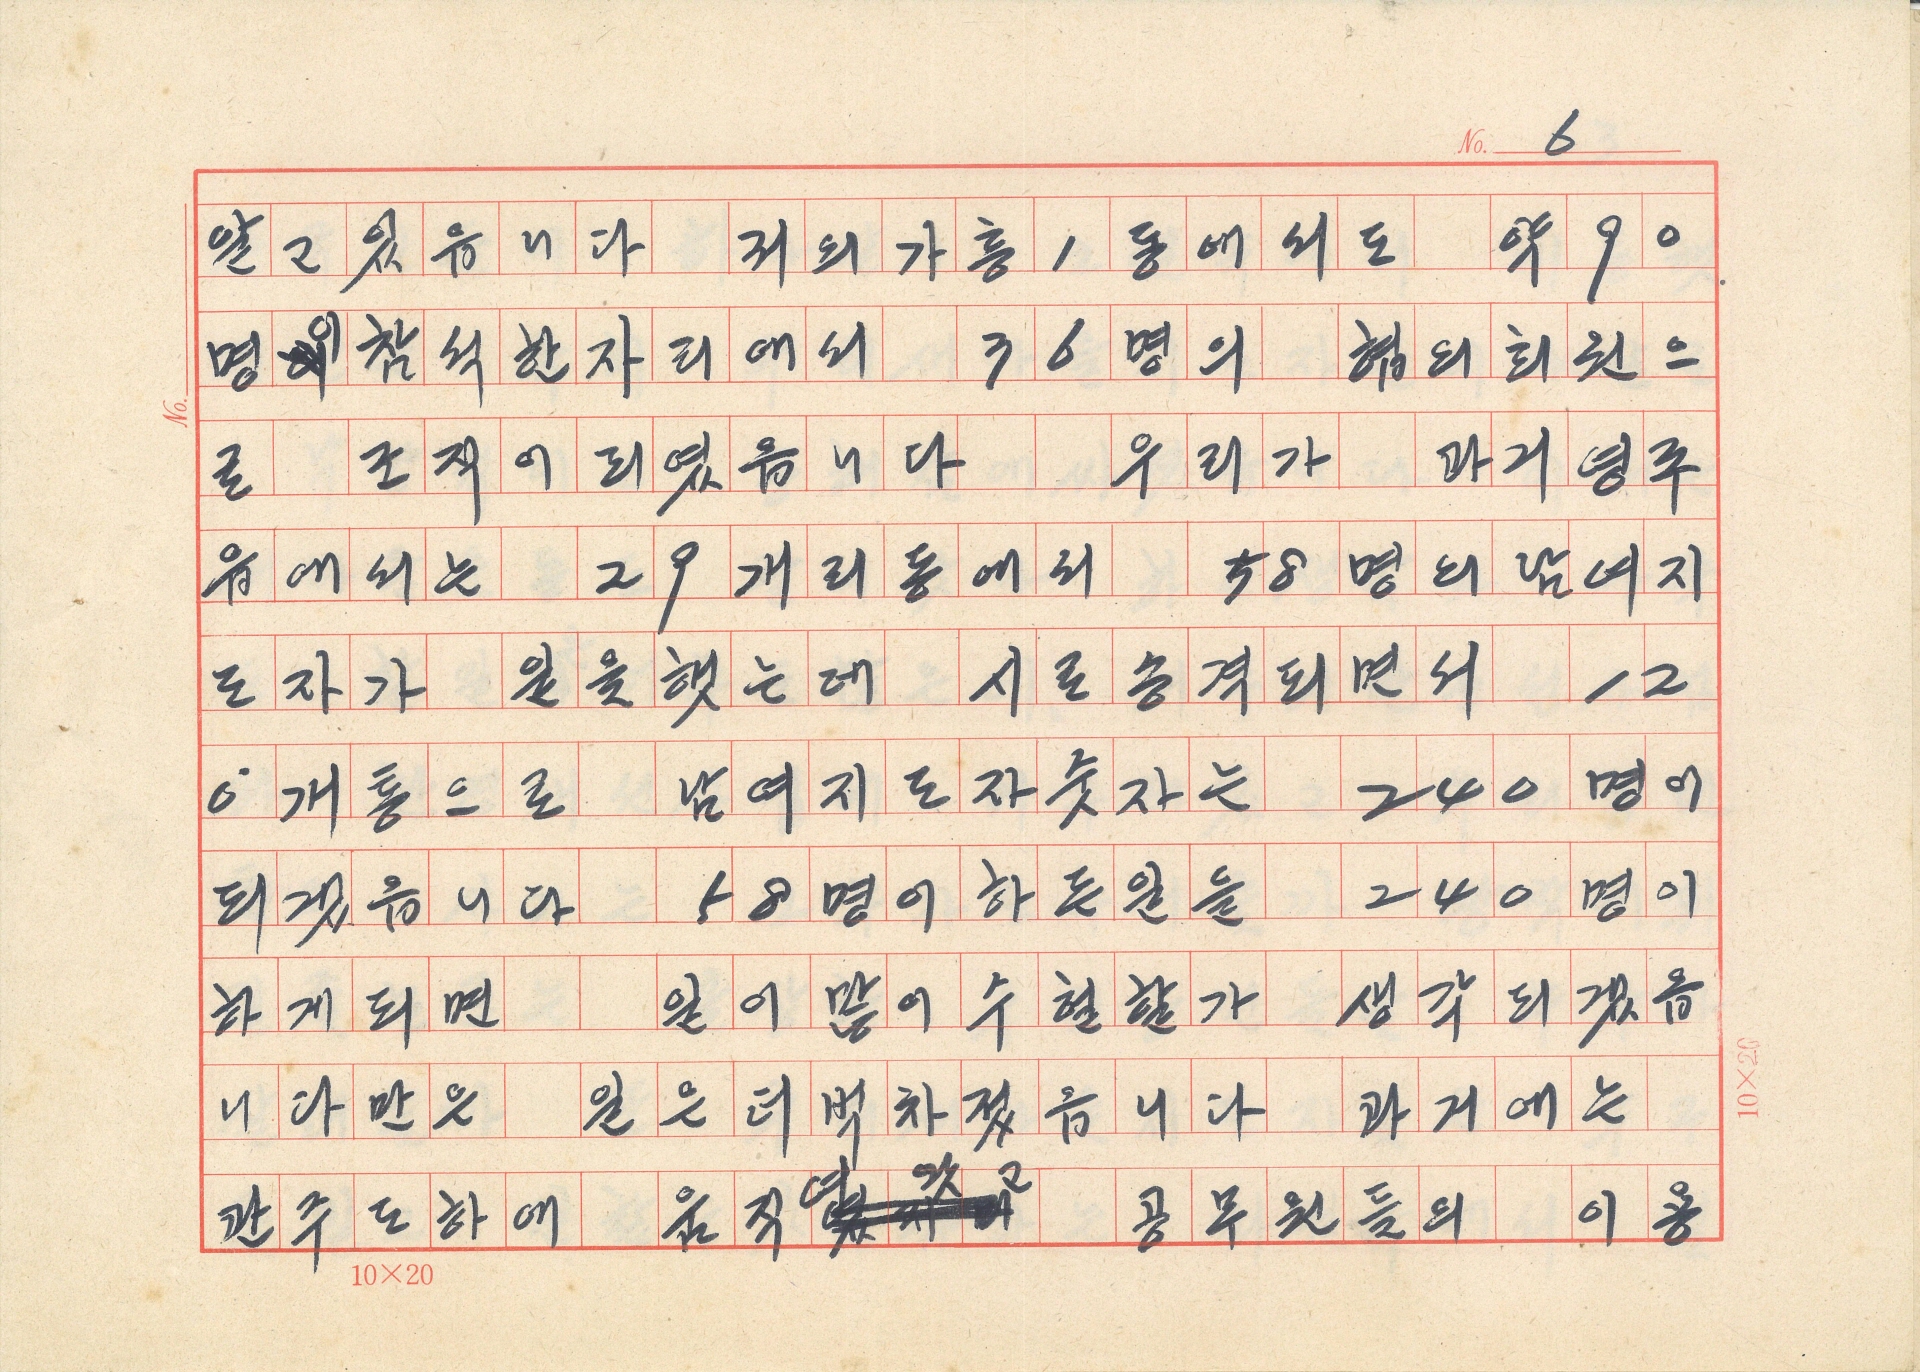 No. 6
알고있읍니다 저의가흥1동에서도 약90
명이참석한자리에서 36명의 협의회원으
로 조직이되였읍니다 우리가 과거영주
읍에서는 29개리동에서 58명의남여지
도자가 일을했는데 시로승격되면서 12
0개통으로 남여지도자숫자는 240명이
되겠읍니다 58명이하든일을 240명이
하게되면 일이많이수헐할가 생각되겠읍
니다만은 일은더벅차졌읍니다 과거에는
관주도하에 움직여갓고 공무원들의 이용
No.
10×20
10×20